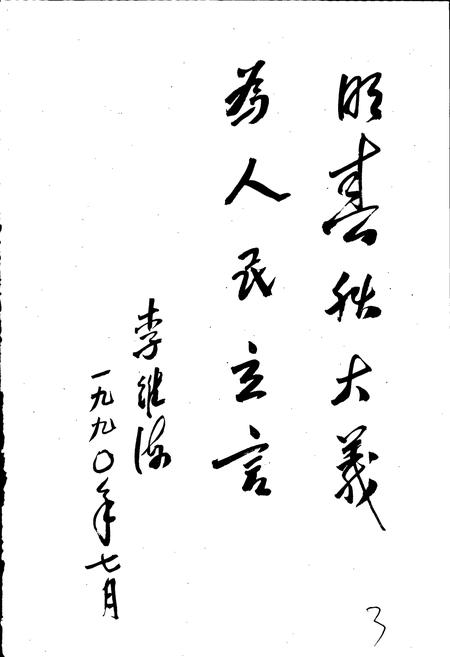 明春秋大義
為人民立言
李維海
一九九〇年七月
3